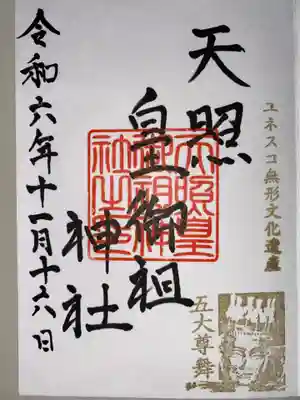 ユネスコ無形文化遺産
五大尊舞
天照
皇御祖
神社
令和六年十一月十六日